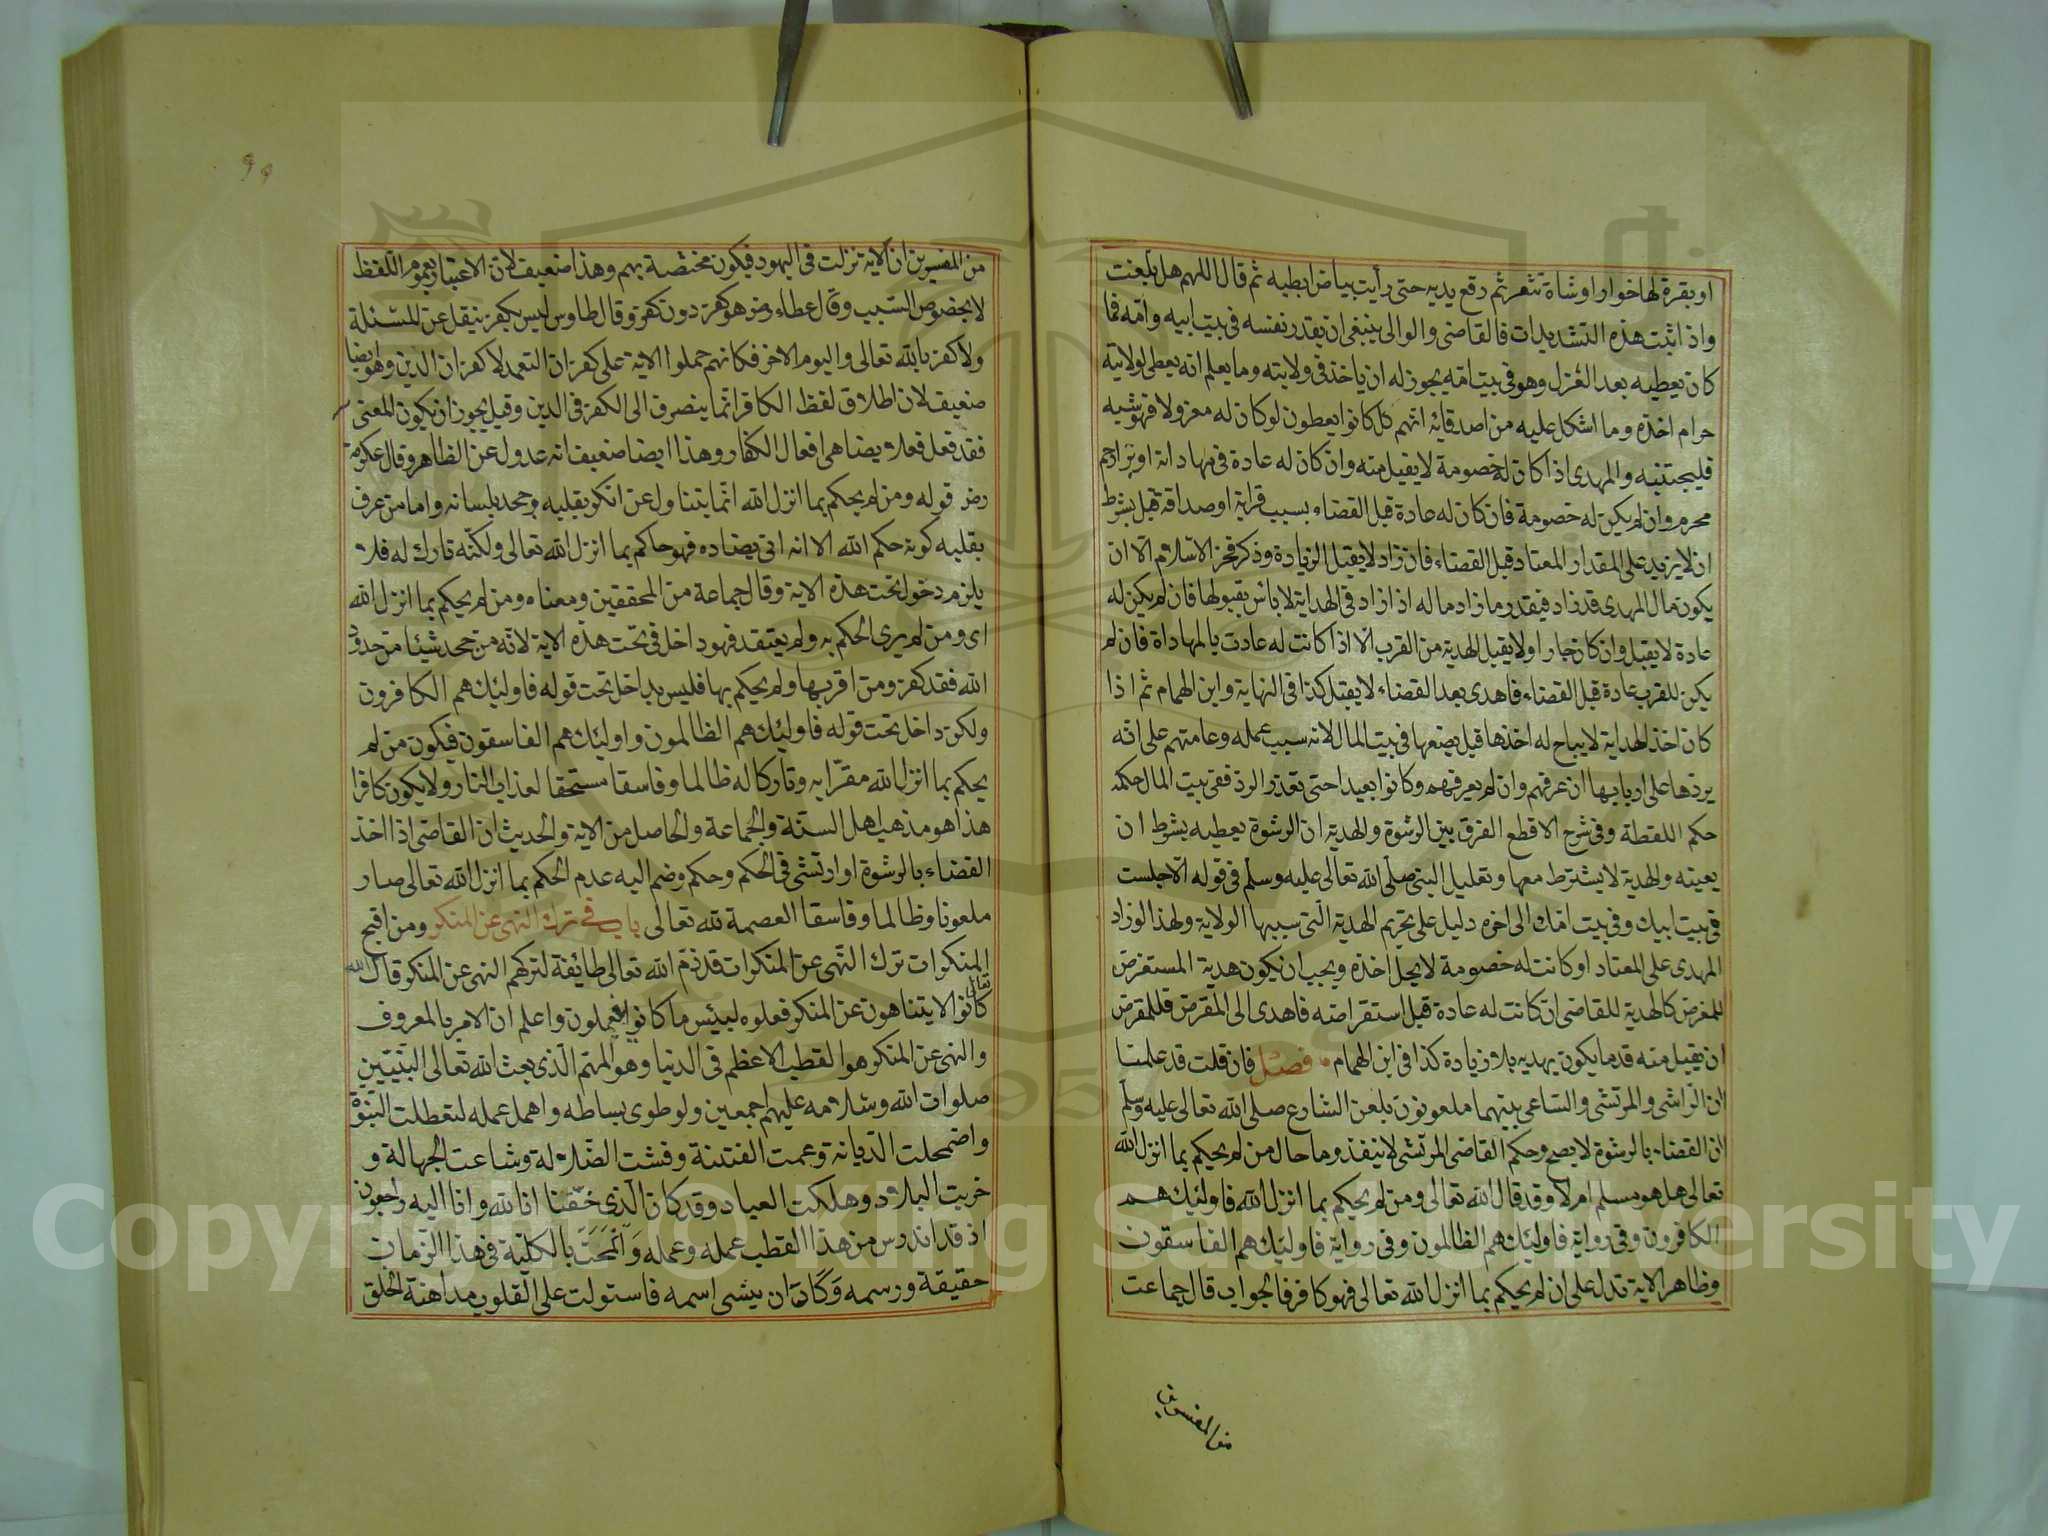 او بقرة لها خوار او شاة تثغر ثم رفع يديه حتى رأيت بياض ابطيه ثم قال اللهم هل بلغت
واذا ثبت هذه التشديدات فالقاضى والوالى ينبغى ان يقدر نفسه فى بيت ابيه وامه فما
كان يعطيه بعد العزل وهو فى بيت امه يجوز له ان ياخذ فى ولايته وما يعلم انه يعطى لولايته
حرام اخذه وما اشكل عليه من اصدقائه انهم كل كانوا يعطون لو كان له معزولا فهو شبهه
فليجتنبه والمهدى اذا كان له خصومة لا يقبل منه وان كان له عادة فى مهاداته او ترا رحم
محرم وان لم يكن له خصومة فان كان له عادة قبل القضاء بسبب قرابة او صداقة قبل بشرط
ان لا يزيد على المقدار المعتاد قبل القضاء فان زاد لا يقبل الزيادة وذكر فخر الاسلام الا ان
يكون مال المهدى قد زاد فبقدر ما زاد ماله اذا زاد فى الهداية لا بأس بقبولها فان لم يكن له
عادة لا يقبل وان كان جارا ولا يقبل الهدية من القرب الا اذا كانت له عادت بالمهاداة فان لم
يكن للقرب عادة قبل القضاء فاهدى بعد القضاء لا يقبل كذا فى النهاية وابن الهمام ثم اذا
كان اخذ الهداية لا يباح له اخذها قيل يضعها فى بيت المال لانه سبب عمله وعامتهم على انه
يردها على اربابها ان عرفهم وان لم يعرفهم وكانوا بعيدا حتى تعذر الرد ففى بيت المال حكمه
حكم اللقطة وفى شرح الاقطع الفرق بين الرشوة والهدية ان الرشوة يعطيه بشرط ان
يعينه والهدية لا يشترط معها وتعليل النبى صلى الله تعالى عليه وسلم فى قوله الا جلست
فى بيت ابيك وفى بيت امك الى اخره دليل على تحريم الهدية التى سببها الولاية ولهذا لو زاد
المهدى على المعتاد او كانت له خصومة لا يحل اخذه ويجب ان يكون هدية المستقرض
للمقرض كالهدية للقاضى ان كانت له عادة قبل استقراضه فاهدى الى المقرض فللمقرض
ان يقبل منه قد ما يكون يهديه بلا زيادة كذا فى ابن الهمام فصل فان قلت قد علمت
ان الراشى والمرتشى والساعى بينهما ملعونون بلعن الشارع صلى الله تعالى عليه وسلم
لان القضاء بالرشوة لا يصح وحكم القاضى المرتشى لا ينفذ وما حال من لم يحكم بما انزل الله
تعالى هل هو مسلم ام لا وقد قال الله تعالى ومن لم يحكم بما انزل الله فاولئك هم
الكافرون وفى رواية فاولئك هم الظالمون وفى رواية فاولئك هم الفاسقون
وظاهر الاية تدل على ان لم يحكم بما انزل الله تعالى فهو كافر فالجواب قال جماعت
من المفسرين
٩٩
من المفسرين ان الاية نزلت فى اليهود فيكون مختصة بهم وهذا ضعيف لان الاعتبار بعموم اللفظ
لا بخصوص السبب وقال عطاء رض هو كفر دون كفر وقال طاوس ليس بكفر ينقل عن المسئلة
ولا كفر بالله تعالى واليوم الاخر فكانهم حملوا الاية على كفران التعمد لا كفران الدين وهو ايضا
ضعيف لان اطلاق لفظ الكافر انما ينصرف الى الكفر فى الدين وقيل يجوز ان يكون المعنى
فقد فعل فعلا يضاهى افعال الكفار وهذا ايضا ضعيف انه عدول عن الظاهر وقال عكرمة
رض قوله ومن لم يحكم بما انزل الله انما يتناول عن انكر بقلبه وجحد بلسانه واما من عرف
بقلبه كونه حكم الله الا انه اتى بضاده فهو حاكم بما انزل الله تعالى ولكنه تارك له فلا
يلزم دخول تحت هذه الاية وقال جماعة من المحققين ومعناه ومن لم يحكم بما انزل الله
اى ومن لم يرى الحكم به ولم يعتقد فهو داخل فى تحت هذه الاية لانه من جحد شيئا من حدود
الله فقد كفر ومن اقر بها ولم يحكم بها فليس بداخل تحت قوله فاولئك هم الكافرون
ولكن داخل تحت قوله فاولئك هم الظالمون واولئك هم الفاسقون فيكون من لم
يحكم بما انزل الله مقرا به وتاركا له ظالما وفاسقا مستحقا لعذاب النار ولا يكون كافرا
هذا هو مذهب اهل السنة والجماعة والحاصل من الاية والحديث ان القاضى اذا اخذ
القضاء بالرشوة او ارتشى فى الحكم وحكم وضم اليه عدم الحكم بما انزل الله تعالى صار
ملعونا وظالما وفاسقا العصمة لله تعالى باب فى ترك النهى عن المنكر ومن اقبح
المنكرات ترك النهى عن المنكرات قد ذم الله تعالى طائفة لتركهم النهى عن المنكر قال الله
تعالى كانوا لا يتناهون عن المنكر فعلوه لبئس ما كانوا يفعلون واعلم ان الامر بالمعروف
والنهى عن المنكر هو القطب الاعظم فى الدنيا وهو المهتم الذى بعث الله تعالى النبيين
صلوات الله وسلامه عليهم اجمعين ولو طوى بساطه واهمل عمله لتعطلت النبوة
واضمحلت الديانة وعمت الفتنة وفشت الضلالة وشاعت الجهالة و
خربت البلاد وهلكت العباد وقد كان الذى خفنا انا لله وانا اليه راجعون
اذ قد اندرس من هذا القطب عمله وعمله وانمحت بالكلية فى هذا الزمان
حقيقة ورسمه وكادت ان ينشى اسمه فاستولت على القلوب مداهنة الخلق
Copyright © King Saud University